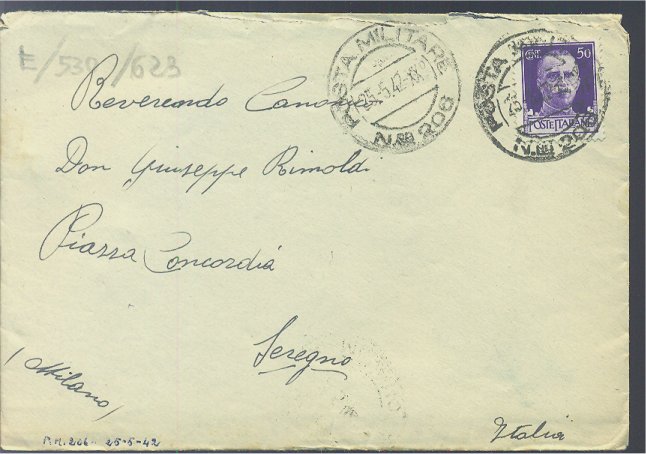 E/530/623
POSTA MILITARE
25.5.42.XX
N. 206
POSTA
N. 206
50
POSTE ITALIANE
Reverendo Canonico
Don Giuseppe Rimoldi
Piazza Concordia
Seregno
(Milano)
Italia
P.M. 206. 25-5-42